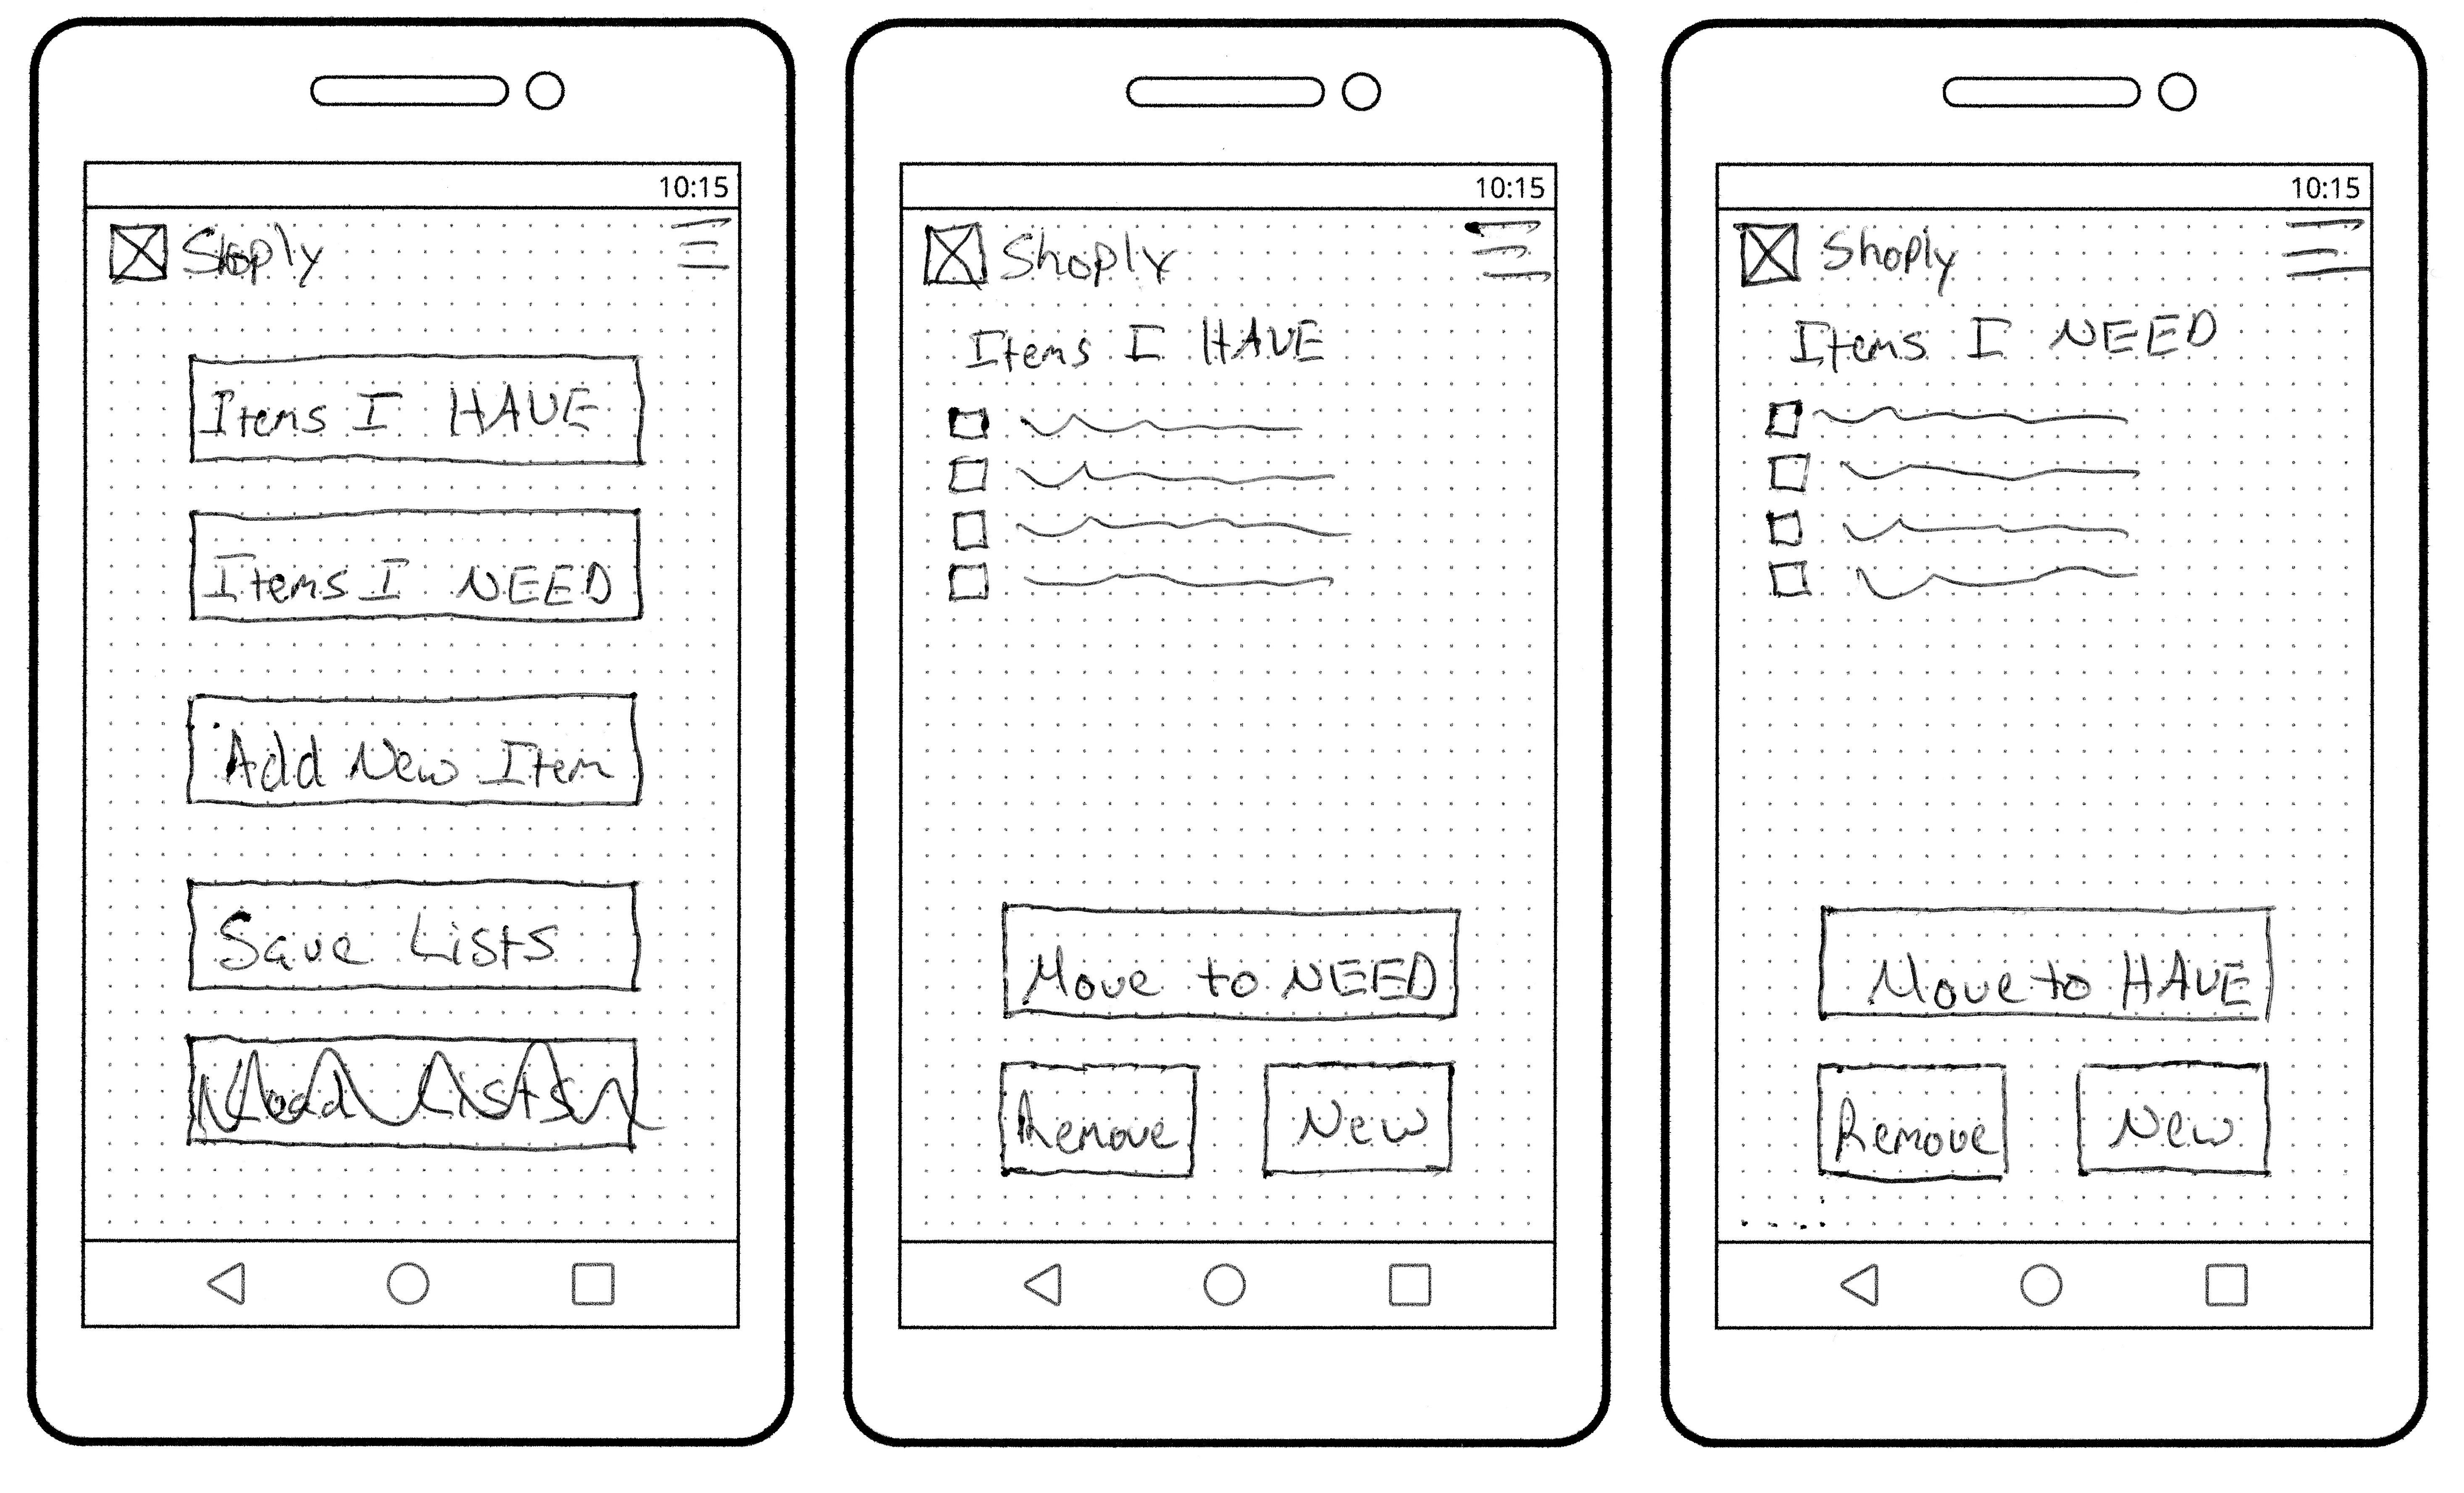 10:15
Shoply
Items I HAVE
Items I NEED
Add New Item
Save Lists
Load Lists
10:15
Shoply
Items I HAVE
Move to NEED
Remove New
10:15
Shoply
Items I NEED
Move to HAVE
Remove New